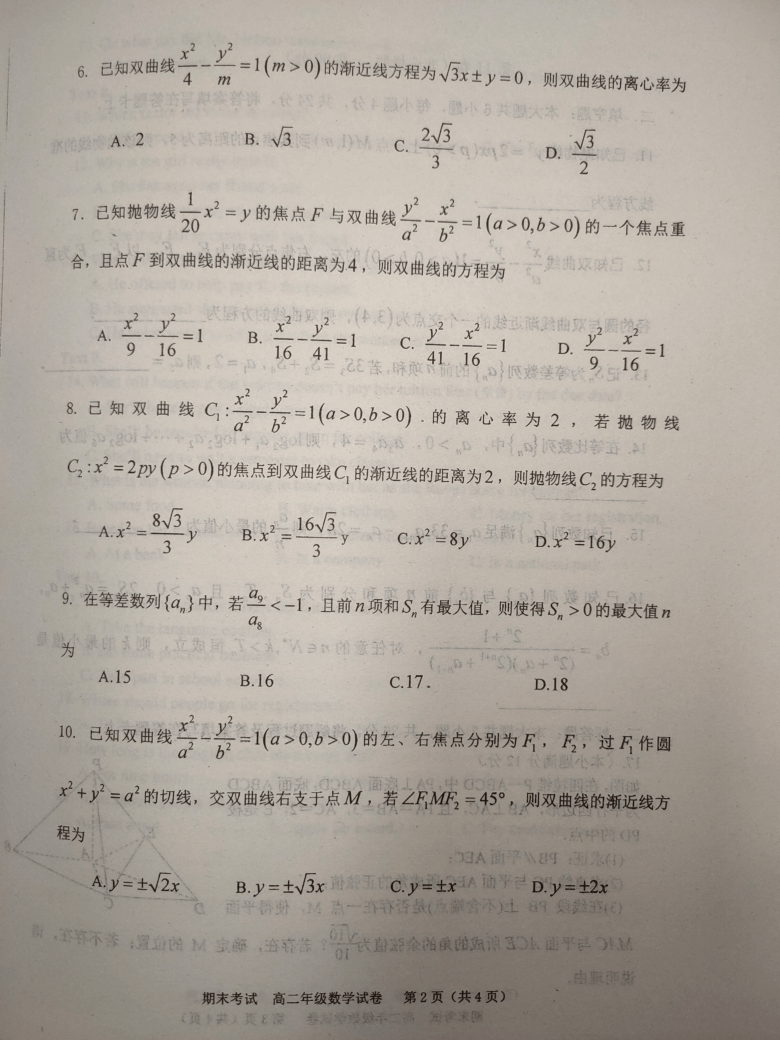 6. 已知双曲线 x²/4 - y²/m = 1(m > 0) 的渐近线方程为 √3x ± y = 0，则双曲线的离心率为
A. 2 B. √3 C. 2√3/3 D. √3/2
7. 已知抛物线 1/20 x² = y 的焦点 F 与双曲线 y²/a² - x²/b² = 1(a > 0, b > 0) 的一个焦点重
合，且点 F 到双曲线的渐近线的距离为 4，则双曲线的方程为
A. x²/9 - y²/16 = 1 B. x²/16 - y²/41 = 1 C. y²/41 - x²/16 = 1 D. y²/9 - x²/16 = 1
8. 已知双曲线 C₁: x²/a² - y²/b² = 1(a > 0, b > 0) . 的离心率为 2 ，若抛物线
C₂: x² = 2py (p > 0) 的焦点到双曲线 C₁ 的渐近线的距离为 2，则抛物线 C₂ 的方程为
A. x² = 8√3/3 y B. x² = 16√3/3 y C. x² = 8y D. x² = 16y
9. 在等差数列{aₙ}中，若 a₉/a₈ < -1，且前 n 项和 Sₙ 有最大值，则使得 Sₙ > 0 的最大值 n
为
A.15 B.16 C.17. D.18
10. 已知双曲线 x²/a² - y²/b² = 1(a > 0, b > 0) 的左、右焦点分别为 F₁，F₂，过 F₁ 作圆
x² + y² = a² 的切线，交双曲线右支于点 M，若 ∠F₁MF₂ = 45°，则双曲线的渐近线方
程为
A. y = ±√2x B. y = ±√3x C. y = ±x D. y = ±2x
期末考试 高二年级数学试卷 第 2 页（共 4 页）